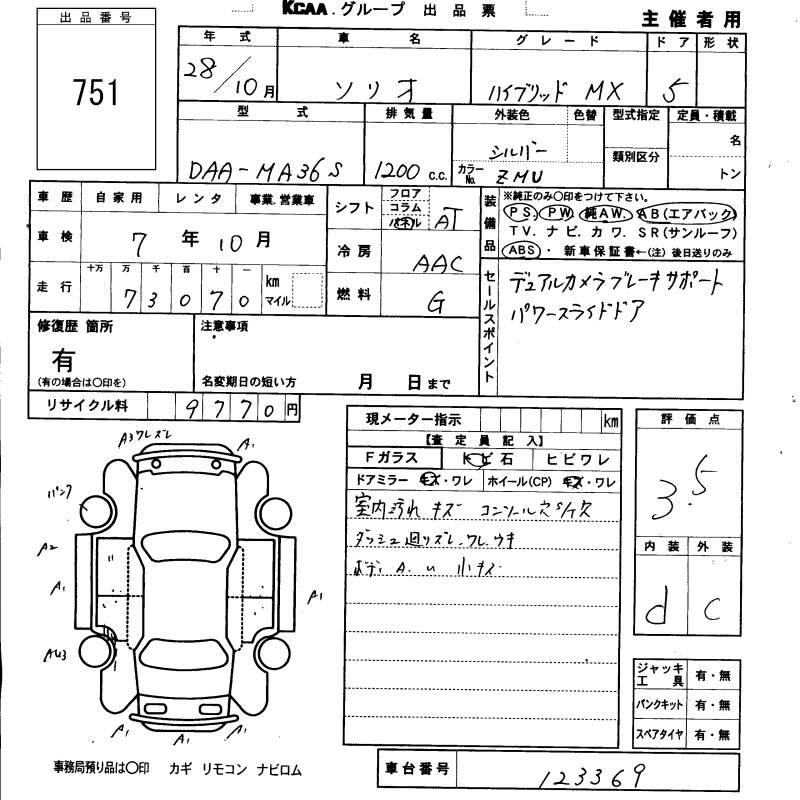 KCAA.グループ 出品票
主催者用
出品番号
751
年式 車名 グレード ドア 形状
28/10月 ソリオ ハイブリッド MX 5
型式 排気量 外装色 色替 型式指定 定員・積載
DAA-MA36S 1200 c.c. シルバー 名
カラーNo. ZMU 類別区分 トン
車歴 自家用 レンタ 事業.営業車
車検 7年10月
走行 十万 万 千 百 十 一
73070 km マイル
シフト フロア コラム パネル AT
冷房 AAC
燃料 G
装備品 ※純正のみ○印をつけて下さい。
PS. PW. 純AW. AB(エアバック)
TV. ナビ. カワ. SR(サンルーフ)
ABS・新車保証書←(注)後日送りのみ
セールスポイント
デュアルカメラブレーキサポート
パワースライドドア
修復歴 箇所
有
(有の場合は○印を)
注意事項
名変期日の短い方 月 日まで
リサイクル料 9770円
現メーター指示 km
【査定員記入】
Fガラス トビ石 ヒビワレ
ドアミラー キズ・ワレ ホイール(CP) キズ・ワレ
室内汚れ キズ コンソール穴
ダッシュ廻りズレ.ワレ.ウキ
ボディ A. u 小キズ
評価点
3.5
内装 外装
d C
ジャッキ工具 有・無
パンクキット 有・無
スペアタイヤ 有・無
A3ワレズレ A1
パンク
A2
A1 A1
AU3
A1 A1 A1
事務局預り品は○印 カギ リモコン ナビロム
車台番号 123369